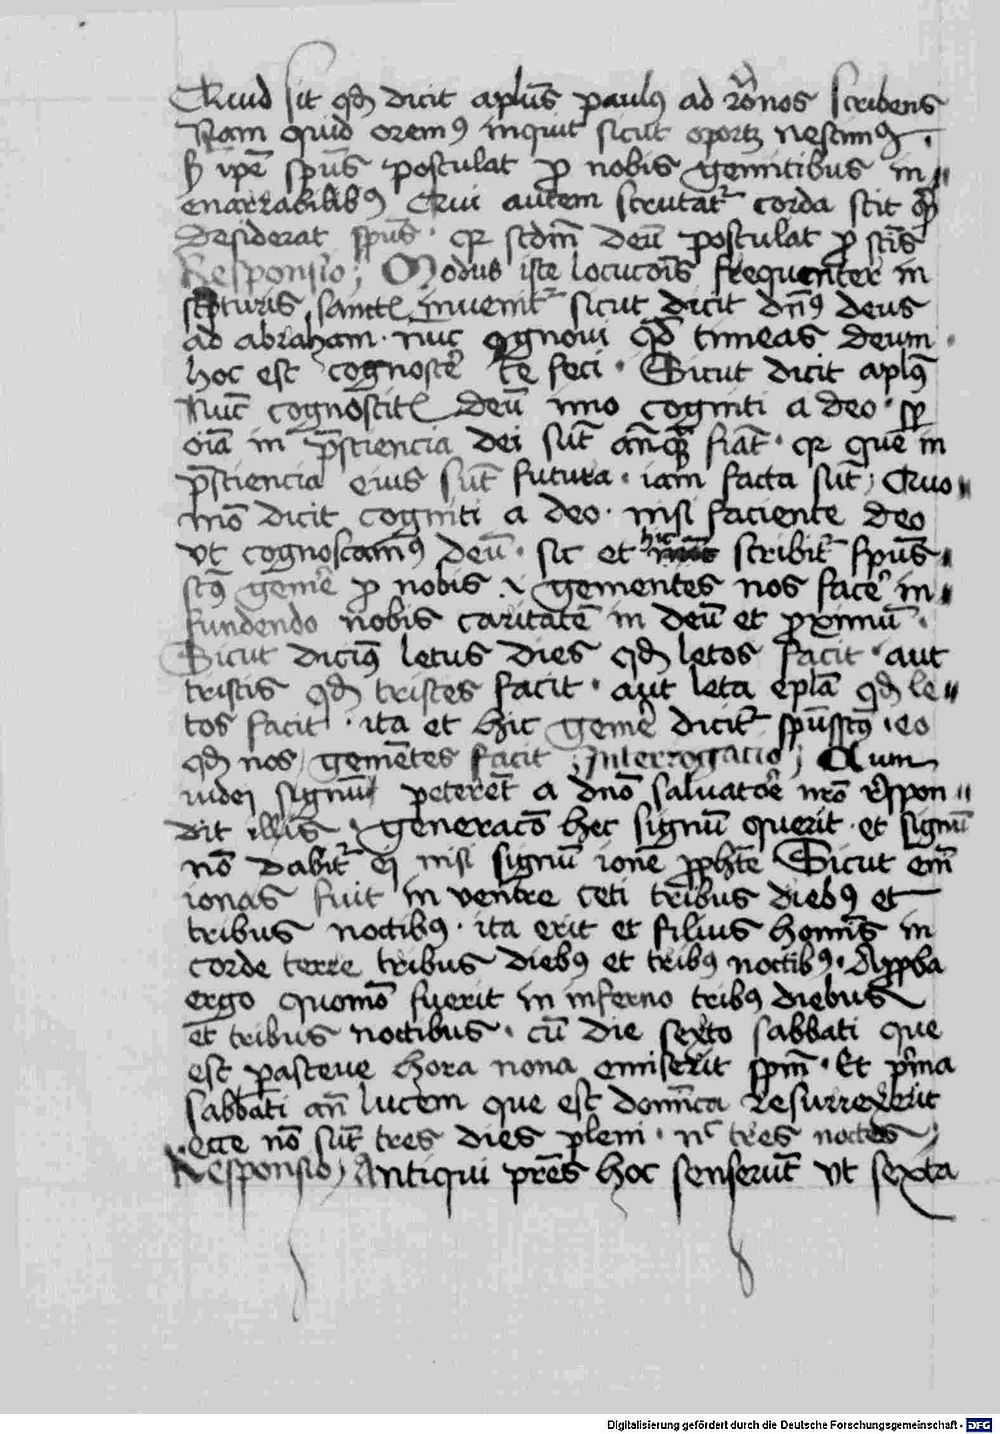 Quid sit qd dicit aplus paulus ad roanos scribens
Nam quid oremus inquit sicut oportet nescimus.
s ipe spus postulat pro nobis gemitibus in
enarrabilibus Qui autem scrutatr corda scit quid
desiderat spus. qr scdm deu postulat pro scis
Responsio; Modus iste locucois frequenter in
scpturis sancte invenitr sicut dicit dns deus
ad abraham. nuc cognoui qd timeas deum.
hoc est cognoscere te feci. Sicut dicit aplus
Nuc cognoscitis deu imo cogniti a deo.
oia in prestiencia dei sut anqua fiat. qr que in
prestiencia eius sut futura. iam facta sut; Quo
mo dicit cogniti a deo. nisi faciente deo
vt cognoscamus deu. sic et hic scribitr spus
scus gemere pro nobis. gementes nos facere in
fundendo nobis caritate in deu et proximu.
Sicut dicimus letus dies qd letos facit. aut
tristis qd tristes facit. aut leta epla qd le
tos facit. ita et hic gemere dicitr spussctus. eo
qd nos gemetes facit; Interrogacio; Cum
iudei signum peteret a dno saluatore nro respon
dit illis. generaco hec signu querit. et signu
no dabitr ei nisi signu ione prophete Sicut em
ionas fuit in ventre ceti tribus diebus et
tribus noctibus. ita erit et filius hominis in
corde terre tribus diebus et tribus noctibus. Approba
ergo quomo fuerit in inferno tribus diebus
et tribus noctibus. cu die sexto sabbati que
est pasceue hora nona emiserit spm. Et prima
sabbati an lucem que est dominica resurrexerit
ecce no sut tres dies pleni. nec tres noctes;
Responsio; Antiqui pres hoc senserut vt sexta
Digitalisierung gefördert durch die Deutsche Forschungsgemeinschaft - DFG